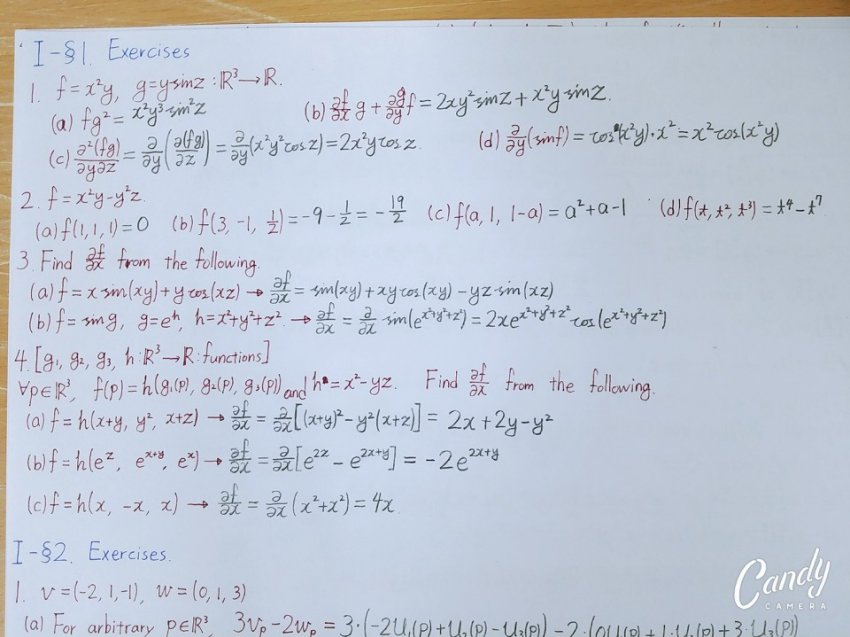 I-§1. Exercises
1. f=x²y, g=y sin z : ℝ³→ℝ.
(a) fg² = x²y³ sin²z (b) ∂f/∂x g + ∂g/∂y f = 2xy² sin z + x²y sin z.
(c) ∂²(fg)/∂y∂z = ∂/∂y(∂(fg)/∂z) = ∂/∂y(x²y² cos z) = 2x²y cos z. (d) ∂/∂y(sin f) = cos(x²y)·x² = x² cos(x²y)
2. f=x²y-y²z.
(a) f(1,1,1)=0 (b) f(3,-1,1/2) = -9-1/2 = -19/2 (c) f(a, 1, 1-a) = a²+a-1 (d) f(t, t², t³) = t⁴-t⁷
3. Find ∂f/∂x from the following.
(a) f = x sin(xy)+y cos(xz) → ∂f/∂x = sin(xy)+xy cos(xy)-yz sin(xz)
(b) f = sin g, g=eʰ, h=x²+y²+z². → ∂f/∂x = ∂/∂x sin(e^(x²+y²+z²)) = 2xe^(x²+y²+z²) cos(e^(x²+y²+z²))
4. [g₁, g₂, g₃, h : ℝ³→ℝ : functions]
∀p∈ℝ³, f(p)=h(g₁(p), g₂(p), g₃(p)) and h = x²-yz. Find ∂f/∂x from the following.
(a) f = h(x+y, y², x+z) → ∂f/∂x = ∂/∂x[(x+y)²-y²(x+z)] = 2x+2y-y²
(b) f = h(e^z, e^(x+y), e^x) → ∂f/∂x = ∂/∂x[e^(2z) - e^(2x+y)] = -2e^(2x+y)
(c) f = h(x, -x, x) → ∂f/∂x = ∂/∂x(x²+x²) = 4x.
I-§2. Exercises.
1. v=(-2,1,-1), w=(0,1,3)
(a) For arbitrary p∈ℝ³, 3vₚ-2wₚ = 3·(-2U₁(p)+U₂(p)-U₃(p))-2·(0U₁(p)+1·U₂(p)+3·U₃(p))
Candy
CAMERA